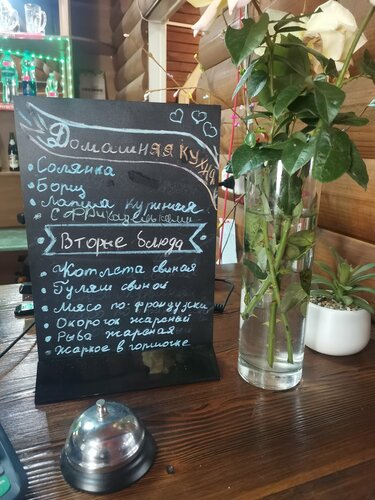 Домашняя кухня
• Солянка
• Борщ
• Лапша куриная
с фрикадельками
Вторые блюда
• Котлета свиная
• Гуляш свиной
• Мясо по-французски
• Окорочок жареный
• Рыба жареная
• Жаркое в горшочке